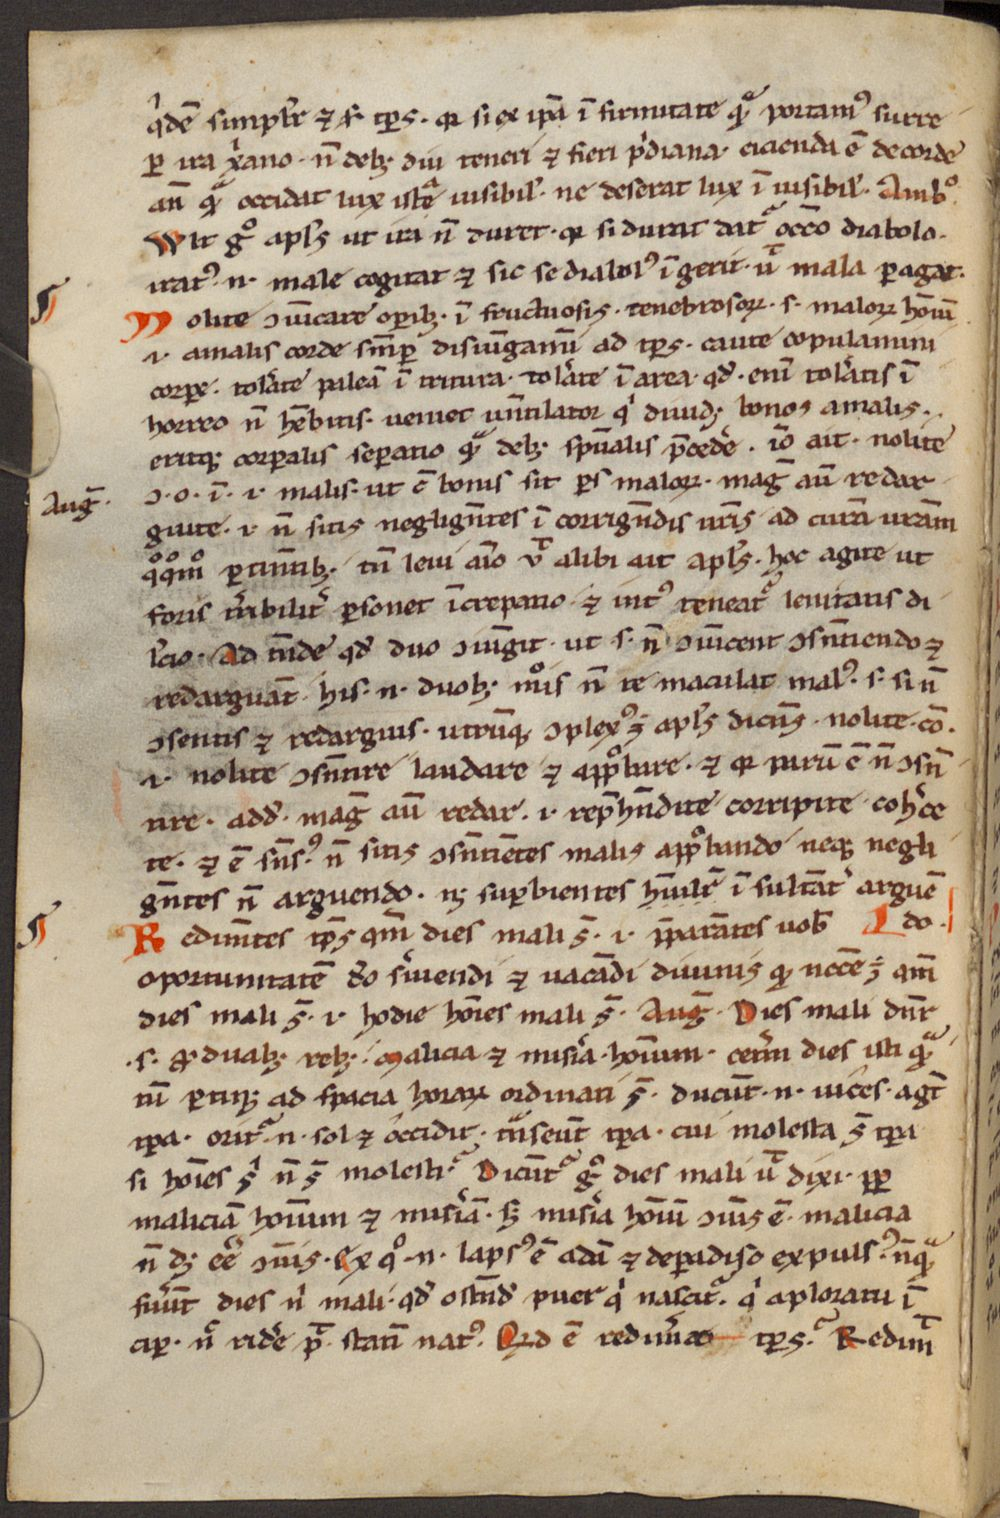 q̇dē simpłr ⁊ ꝯͭ tꝑs. qꝛ si ex ip̄a ī firmitate qᷓ portam᷒ surre
ꝑ ira x̄ano. n̄ debꝫ diu teneri ⁊ fieri p̓diana. eicienda ē de corde
an̄ qᷓ occidat lux istᵃ uisibił. ne deserat lux īuisibił. Amb᷒
Wlt gͦ apłs ut ira n̄ duret. qꝛ si durat datᷣ occō diabolo.
irat᷒ .n. male cogitat ⁊ sic se diabol᷒ īgerit. uͭ mala ꝑagat.
Nolite ɔīcare oꝑibꝫ. īfructuosis. tenebrosoꝝ. s. maloꝝ hoīm
.i. a malis corde sm̄ꝑ disiūgamī ad tꝑs. caute copulamini
corꝑe. tolʼate paleā ī tritura. tolʼate ī area. qd̄. enī tolʼatis ī
horreo n̄ hēbitis. ueniet uentilator q̓ diuidꝫ bonos a malis.
eritqꝫ corꝑalis seꝑatio qᷓ debꝫ spūalis p̄cedʼe. iō ait. nolite
Aug̃. ɔ.o.ī. .i. malis. ut ē bonis sit ꝑs maloꝝ. mag̃ aū redar
guite. .i. n̄ sitis negligētes ī corrigēdis ur̄is ad curā urām
qͦqͦmͦ ꝑtinētibꝫ. tn̄ leui aīo uͭ alibi ait apłs. hoc agite ut
foris tʼribilitʼ ꝑsonet īcrepatio ⁊ int᷒ teneatᷣ lenitatis di
lc̄io. Ad tēde qd̄ duo ɔiūgit. ut s. n̄ ɔīcent ɔsentiendo ⁊
redarguāt. his .n. duobꝫ mͦis n̄ te maculat mal᷒. s. si n̄
ɔsentis ⁊ redarguis. utrūqꝫ ɔplex᷒ ē apłs dicēs. nolite. cō.
.i. nolite ɔsētire laudare ⁊ appͦbare. ⁊ qꝛ parū ē n̄ ɔsēn
tire. add̄. mag̃ aū redar. .i. rep̄hēdite corripite cohʼce
te. ⁊ ē sēs᷒. n̄ sitis ɔsētiētes malis appͦbando neqꝫ negli
gētes n̄ arguendo. nꝫ suꝑbientes huīlitʼ īsultātʼ arguē
Redimētes tp̄s qm̄ dies mali s̄t. .i. p̄parātes uob̄ do.
oportunitatē dō sʼuiendi ⁊ uacādi diuinis qꝫ necē ē qm̄
dies mali s̄t. .i. hodie hoīes mali s̄t. Aug̃. Dies mali dn̄r
.s. ꝓ duabꝫ rebꝫ. Malicia ⁊ misʼia hoīum. cetʼm dies isti qᷓ
tū ꝑtinꝫ ad spacia horaꝝ ordinati s̄t. ducūt .n. uices. agūt
tꝑa. oritᷣ .n. sol ⁊ occidit. tᷓseūt tꝑa. cui molesta s̄t tꝑa
si hoīes s̄ n̄ s̄t molesti. Dicūtᷣ gͦ dies mali uͭ dixi. ꝓp
maliciā hoīum ⁊ misʼiā. sꝫ misʼia hoīm ɔīs ē. malicia
n̄ dꝫ eē ɔīs. Ex qͦ .n. laps᷒ ē adā ⁊ de paradiso expuls᷒. nūqᷓ
fuūt dies nͥ mali. qd̄ ostēd̄ puer q̓ nascitᷣ. q̓ a ploratu ī
ciꝑ. nͦ ridʼe p̄t statī nat᷒. Qid ē redimʼe tꝑs. Redimͭ